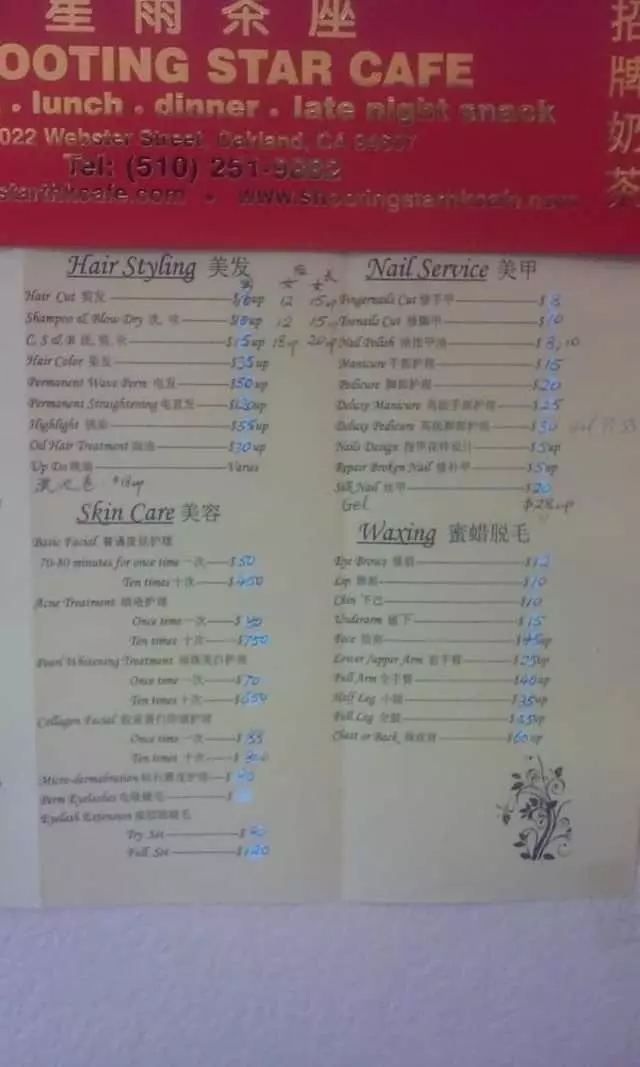 星雨茶座
招牌奶茶
OOTING STAR CAFE
. lunch . dinner . late night snack
022 Webster Street, Oakland, CA 94607
Tel: (510) 251-9882
starhkcafe.com • www.shootingstarhkcafe.com
Hair Styling 美发
Hair Cut 剪发 up 12 15up
Shampoo & Blow Dry 洗, 吹 up 12 15up
C, S & B 洗, 剪, 吹 $15up 18up 20up
Hair Color 染发 $35up
Permanent Wave Perm 电发 $50up
Permanent Straightening $120up
Highlight $55up
Oil Hair Treatment $30up
Up Do Varies
$18up
Skin Care 美容
Basic Facial 普通皮肤护理
70-80 minutes for once time 一次 $50
Ten times 十次 $450
Acne Treatment
Once time 一次
Ten times 十次 $750
Pearl Whitening Treatment
Once time 一次 $70
Ten times 十次 $650
Collagen Facial
Once time 一次
Ten times 十次 $800
Micro-dermabration
Perm Eyelashes
Eyelash Extension
Try Set
Full Set $120
Nail Service 美甲
Fingernails Cut 修手甲 $8
Toenails Cut 修脚甲 $10
Nail Polish $8, 10
Manicure 手部护理 $15
Pedicure 脚部护理 $20
Deluxy Manicure 高级手部护理 $25
Deluxy Pedicure 高级脚部护理 $30
Nails Design $5up
Repair Broken Nail 修补甲 $5up
Silk Nail 丝甲 $20
Gel $28up
Waxing 蜜蜡脱毛
Eye Brows $12
Lip $10
Chin 下巴 $10
Underarm 腋下 $15
Face up
Lower/upper Arm $25up
Full Arm 全手臂 $40up
Half Leg 小腿 $35up
Full Leg 全腿 up
Chest or Back $60up